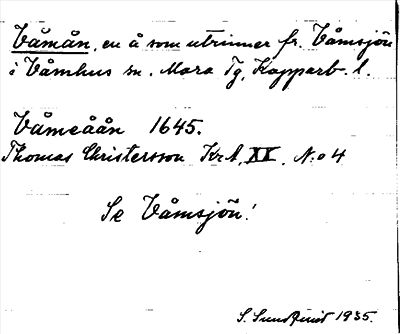 Våmån, en å som utrinner fr. Våmsjön
i Våmhus sn. Mora Tg, Kopparb. l.
Våmeåån 1645.
Thomas Christersson Kr A, XX. No 4
Se Våmsjön!
S. Sundquist 1935.